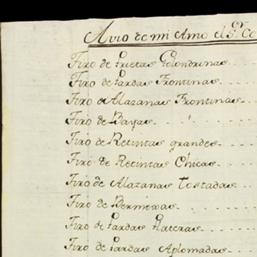 Avio de mi Amo el Sr. Co
Tiro de Prietas Golondrinas
Tiro de Pardas Frontinas
Tiro de Alazanas Frontinas
Tiro de Bayas
Tiro de Retintas grandes
Tiro de Retintas Chicas
Tiro de Alazanas Tostadas
Tiro de Bermexas
Tiro de Pardas Rateras
Tiro de Pardas Aplomadas